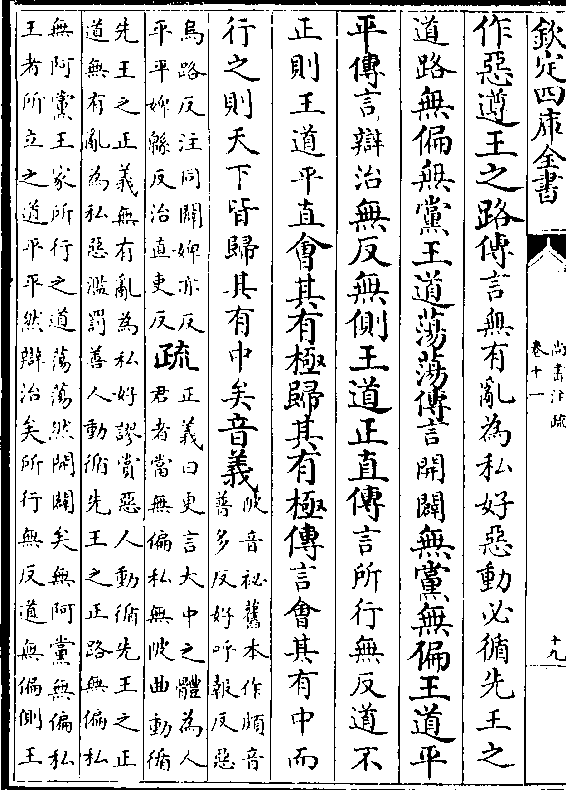 欽定四庫全書
尚書注疏
卷十一
十九
作惡遵王之路傳言無有亂為私好惡動必循先王之
道路無偏無黨王道蕩蕩傳言開闢無黨無偏王道平
平傳言辯治無反無側王道正直傳言所行無反道不
正則王道平直會其有極歸其有極傳言會其有中而
行之則天下皆歸其有中矣音義
陂音祕舊本作頗音
普多反好呼報反惡
烏路反注同闢婢亦反
平平婢緜反治直吏反
疏
正義曰更言大中之體為人
君者當無偏私無陂曲動循
先王之正義無有亂為私好謬賞惡人動循先王之正
道無有亂為私惡濫罰善人動循先王之正路無偏私
無阿黨王家所行之道蕩蕩然開闢矣無阿黨無偏私
王者所立之道平平然辯治矣所行無反道無偏側王